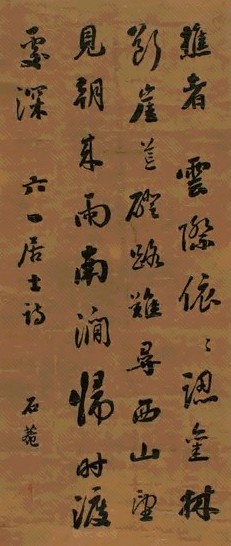 樵者 雲際依〻認舊林
斷崖荒磴路難尋西山望
見朝来雨南澗歸時渡
處深 六一居士詩 石菴